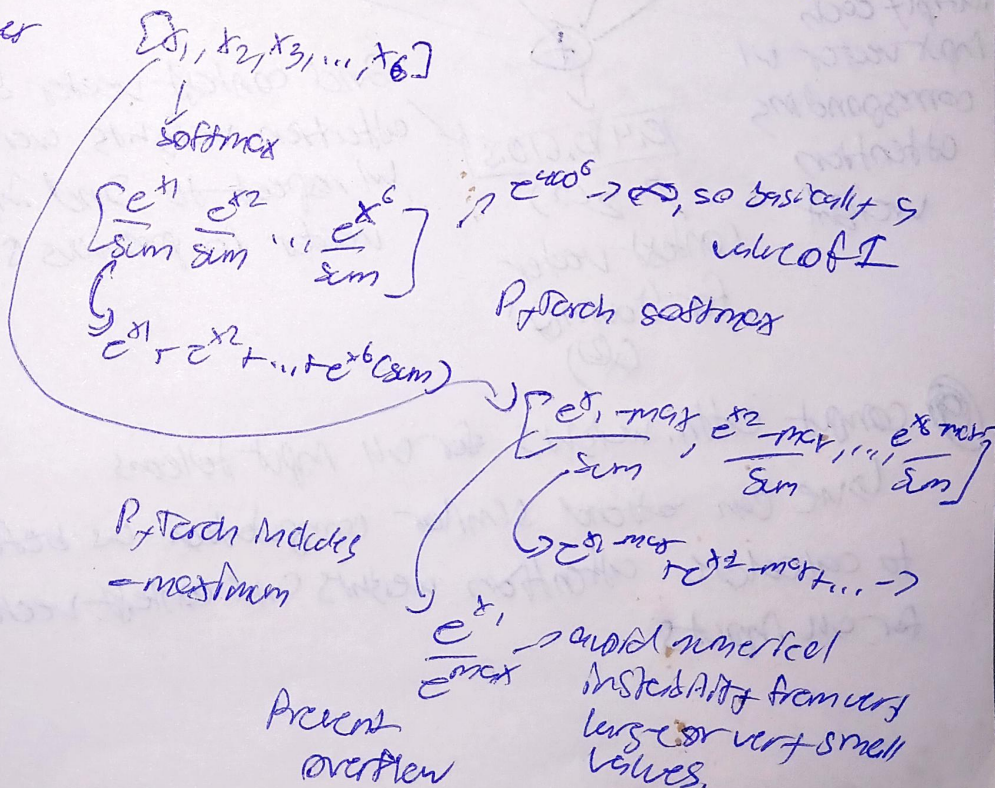 [x₁, x₂, x₃, ..., x₆]
softmax
[e^x1/sum e^x2/sum ..., e^x6/sum]
e^400^6 → ∞, so basically
value of 1
e^x1 + e^x2 + ... + e^x6 (sum)
PyTorch softmax
[e^x1 - max/sum, e^x2 - max/sum, ..., e^x6 - max/sum]
e^x1 - max + e^x2 - max + ... →
PyTorch includes
- maximum
e^x1/e^max → avoid numerical
instability from very
large or very small
values.
Prevent
overflow